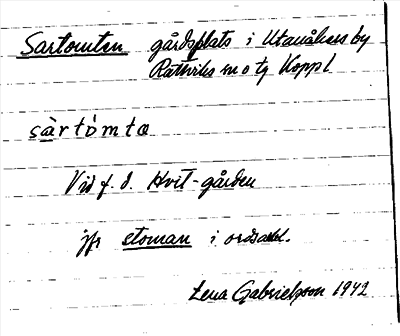 Sartomten gårdsplats i Utanåkers by
Rättviks sn o tg Koppl
sàrtómta
Vid f. d. Hvit-gården
jfr stoman i ordsaml.
Lena Gabrielsson 1942